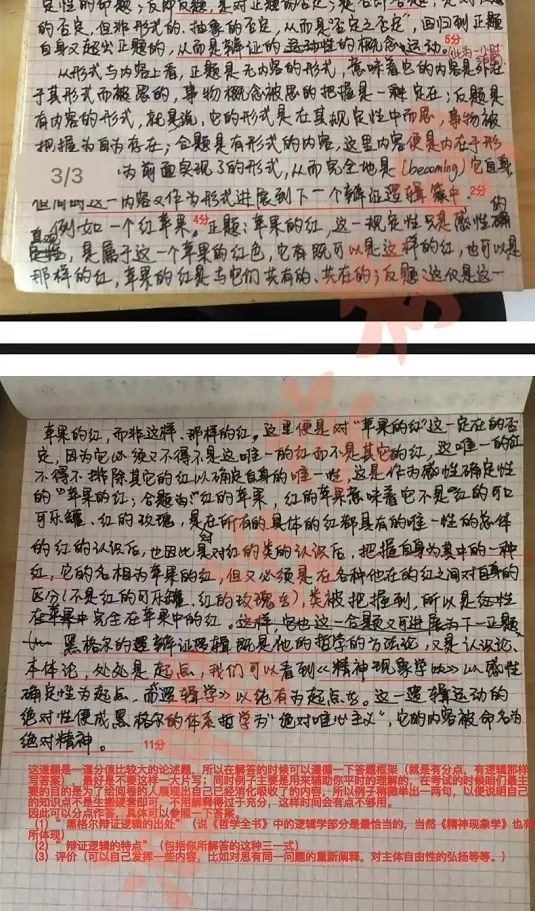 定性的命题；反即反题，是对正题的否定；
的否定，但非形式的、抽象的否定，从而是"否定之否定"，回归到正题
自身又超出正题的，从而是辩证的运动性的概念运动。
5分
从形式与内容上看，正题是无内容的形式，意味着它的内容是外在
于其形式而被思的，事物概念被思的把握是一种定在；反题是
有内容的形式，就是说，它的形式是在其规定性中而思，事物被
把握为自为存在；合题是有形式的内容，这里内容便是内在于形
3/3
为前面实现了的形式，从而完全地是（becoming）它自身，
但同时这一内容又作为形式进展到下一个辩证逻辑篇中。
2分
例如一个红苹果。
4分
正题：苹果的红，这一规定性只是感性的确
，是属于这一个苹果的红色，它有既可以是这样的红，也可以是
那样的红，苹果的红是与它们共有的、共在的；反题：这仅是这一
苹果的红，而非这样、那样的红。这里便是对"苹果的红"这一定在的否
定，因为它必须又不得不是这唯一的红而不是其它的红，这唯一的红
不得不排除其它的红以确定自身的唯一性，这是作为感性确定性
的"苹果的红；合题为："红的苹果，红的苹果意味着它不是"红的可口
可乐罐、红的玫瑰，是在所有的具体的红都具有的唯一性的总体
的红的认识后，也因此是对红的类的认识后，把握自身为其中的一种
红，它的名相为苹果的红，但又必须是在各种他在的红之间对自身的
区分（不是红的可乐罐、红的玫瑰等），类被把握到，所以是红性
在苹果中完全在苹果中的红。这样，它也这一合题又可进展为下一正题
黑格尔的辩证逻辑既是他的哲学的方法论，又是认识论、
本体论，处处是起点，我们可以看到《精神现象学》以感性
确定性为起点，而《逻辑学》以纯有为起点等。这一逻辑运动的
绝对性便成黑格尔的体系哲学为"绝对唯心主义"，它的内容被命名为
绝对精神。
11分
这道题是一道分值比较大的论述题，所以在解答的时候可以遵循一下答题框架（就是有分点，有逻辑那样
写答案），最好是不要这样一大片写；同时例子主要是用来辅助你平时的理解的，在考试的时候咱们最主
要的目的是为了给阅卷的人展现出自己已经消化吸收了的内容，所以例子稍微举出一两句，以便说明自己
的知识点不是生搬硬套即可，不用解释得过于充分，这样时间会有点不够用。
因此可以分点作答，具体可以参照一下答案。
（1）"黑格尔辩证逻辑的出处"（说《哲学全书》中的逻辑学部分是最恰当的，当然《精神现象学》也有
所体现）
（2）"辩证逻辑的特点"（包括你所解答的这种三一式）
（3）评价（可以自己发挥一些内容，比如对思有同一问题的重新阐释。对主体自由性的弘扬等等。）